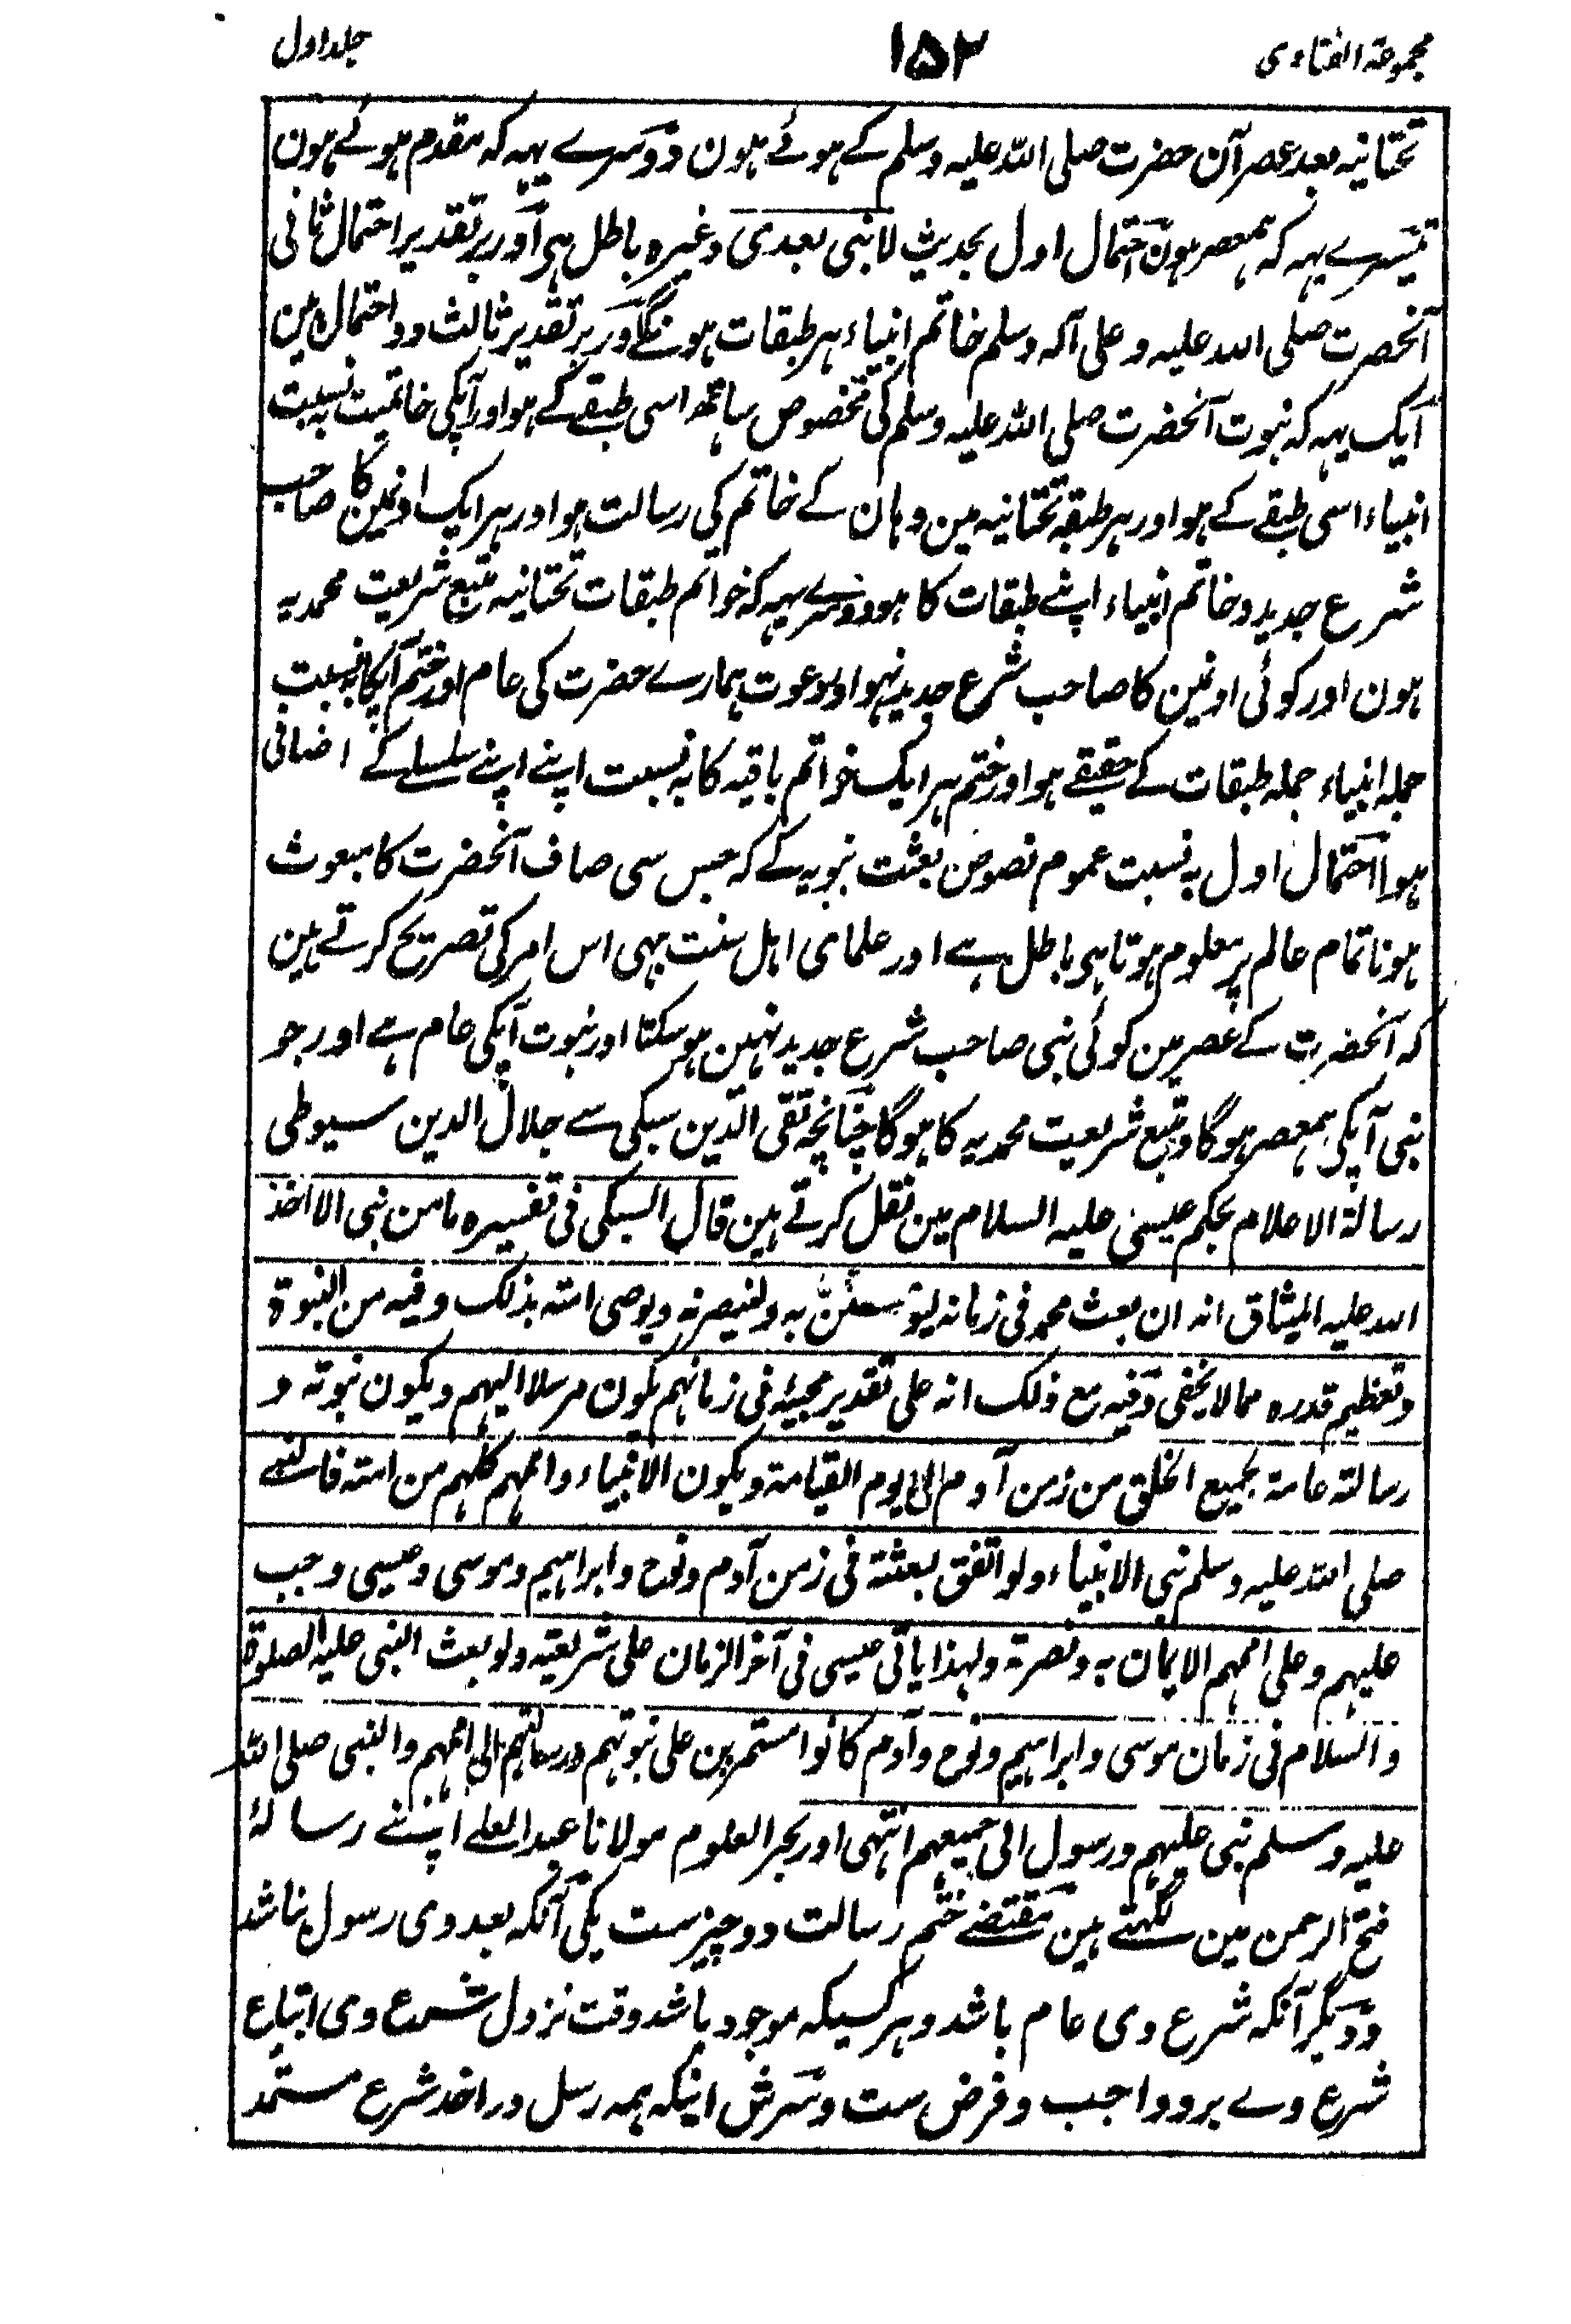 مجموعۃ الفتاوی ۱۵۲ جلد اول
تحتانیہ بعد عصر آن حضرت صلی اللہ علیہ وسلم کے ہوئے ہون دوسرے یہہ کہ مقدم ہوئے ہون
تیسرے یہہ کہ ہمعصر ہون احتمال اول بحدیث لا نبی بعدی وغیرہ باطل ہی اور بر تقدیر احتمال ثانی
آنحضرت صلی اللہ علیہ وعلی آلہ وسلم خاتم انبیاء ہر طبقات ہونگے اور بر تقدیر ثالث دو احتمال ہین
ایک یہہ کہ نبوت آنحضرت صلی اللہ علیہ وسلم کی مخصوص ساتھہ اسی طبقے کے ہو اور آپکی خاتمیت بہ نسبت
انبیاء اسی طبقے کے ہو اور ہر طبقہ تحتانیہ مین وہان کے خاتم کی رسالت ہو اور ہر ایک اونمین کا صاحب
شرع جدید و خاتم انبیاء اپنے طبقات کا ہو دوسرے یہہ کہ خواتم طبقات تحتانیہ متبع شریعت محمدیہ
ہون اور کوئی اونمین کا صاحب شرع جدید نہو اور دعوت ہمارے حضرت کی عام اور ختم آپکا بہ نسبت
جملہ انبیاء جملہ طبقات کے حقیقے ہو اور ختم ہر ایک خواتم باقیہ کا بہ نسبت اپنے اپنے سلسلے کے اضافی
ہو احتمال اول بہ نسبت عموم نصوص بعثت نبویہ کے کہ جس سی صاف آنحضرت کا مبعوث
ہونا تمام عالم پر معلوم ہوتا ہی باطل ہے اور علمای اہل سنت بہی اس امر کی تصریح کرتے ہین
کہ آنحضرت کے عصر مین کوئی نبی صاحب شرع جدید نہین ہو سکتا اور نبوت آپکی عام ہے اور جو
نبی آپکی ہمعصر ہوگا متبع شریعت محمدیہ کا ہوگا چنانچہ تقی الدین سبکی سے جلال الدین سیوطی
رسالۃ الاعلام بحکم عیسی علیہ السلام مین نقل کرتے ہین قال السبکی فی تفسیرہ ما من نبی الا اخذ
اللہ علیہ المیثاق انہ ان بعث محمد فی زمانہ لیؤمنن بہ ولینصرنہ ویوصی امتہ بذلک وفیہ من النبوۃ
وتعظیم قدرہ مما لا یخفی وفیہ مع ذلک انہ علی تقدیر مجیئہ فی زمانہم یکون مرسلا الیہم ویکون نبوتہ و
رسالتہ عامۃ بجمیع الخلق من زمن آدم الی یوم القیامۃ ویکون الانبیاء واممہم کلہم من امتہ فالنبی
صلی اللہ علیہ وسلم نبی الانبیاء ولو اتفق بعثتہ فی زمن آدم ونوح وابراہیم وموسی وعیسی وجب
علیہم وعلی اممہم الایمان بہ ونصرتہ ولہذا یاتی عیسی فی آخر الزمان علی شریعتہ ولو بعث النبی علیہ الصلوۃ
والسلام فی زمان موسی وابراہیم ونوح وآدم کانوا مستمرین علی نبوتہم ورسالتہم الی اممہم والنبی صلی اللہ
علیہ وسلم نبی علیہم ورسول الی جمیعہم انتہی اور بحر العلوم مولانا عبدالعلے اپنے رسالۂ
فتح الرحمن مین لکہتے ہین مقتضے ختم رسالت دو چیزست یکی آنکہ بعد وی رسول نباشد
و دیگر آنکہ شرع وی عام باشد و ہر کسیکہ موجود باشد وقت نزول شرع وی اتباع
شرع وے برو واجب و فرض ست و سرش اینکہ ہمہ رسل در اخذ شرع مستمد